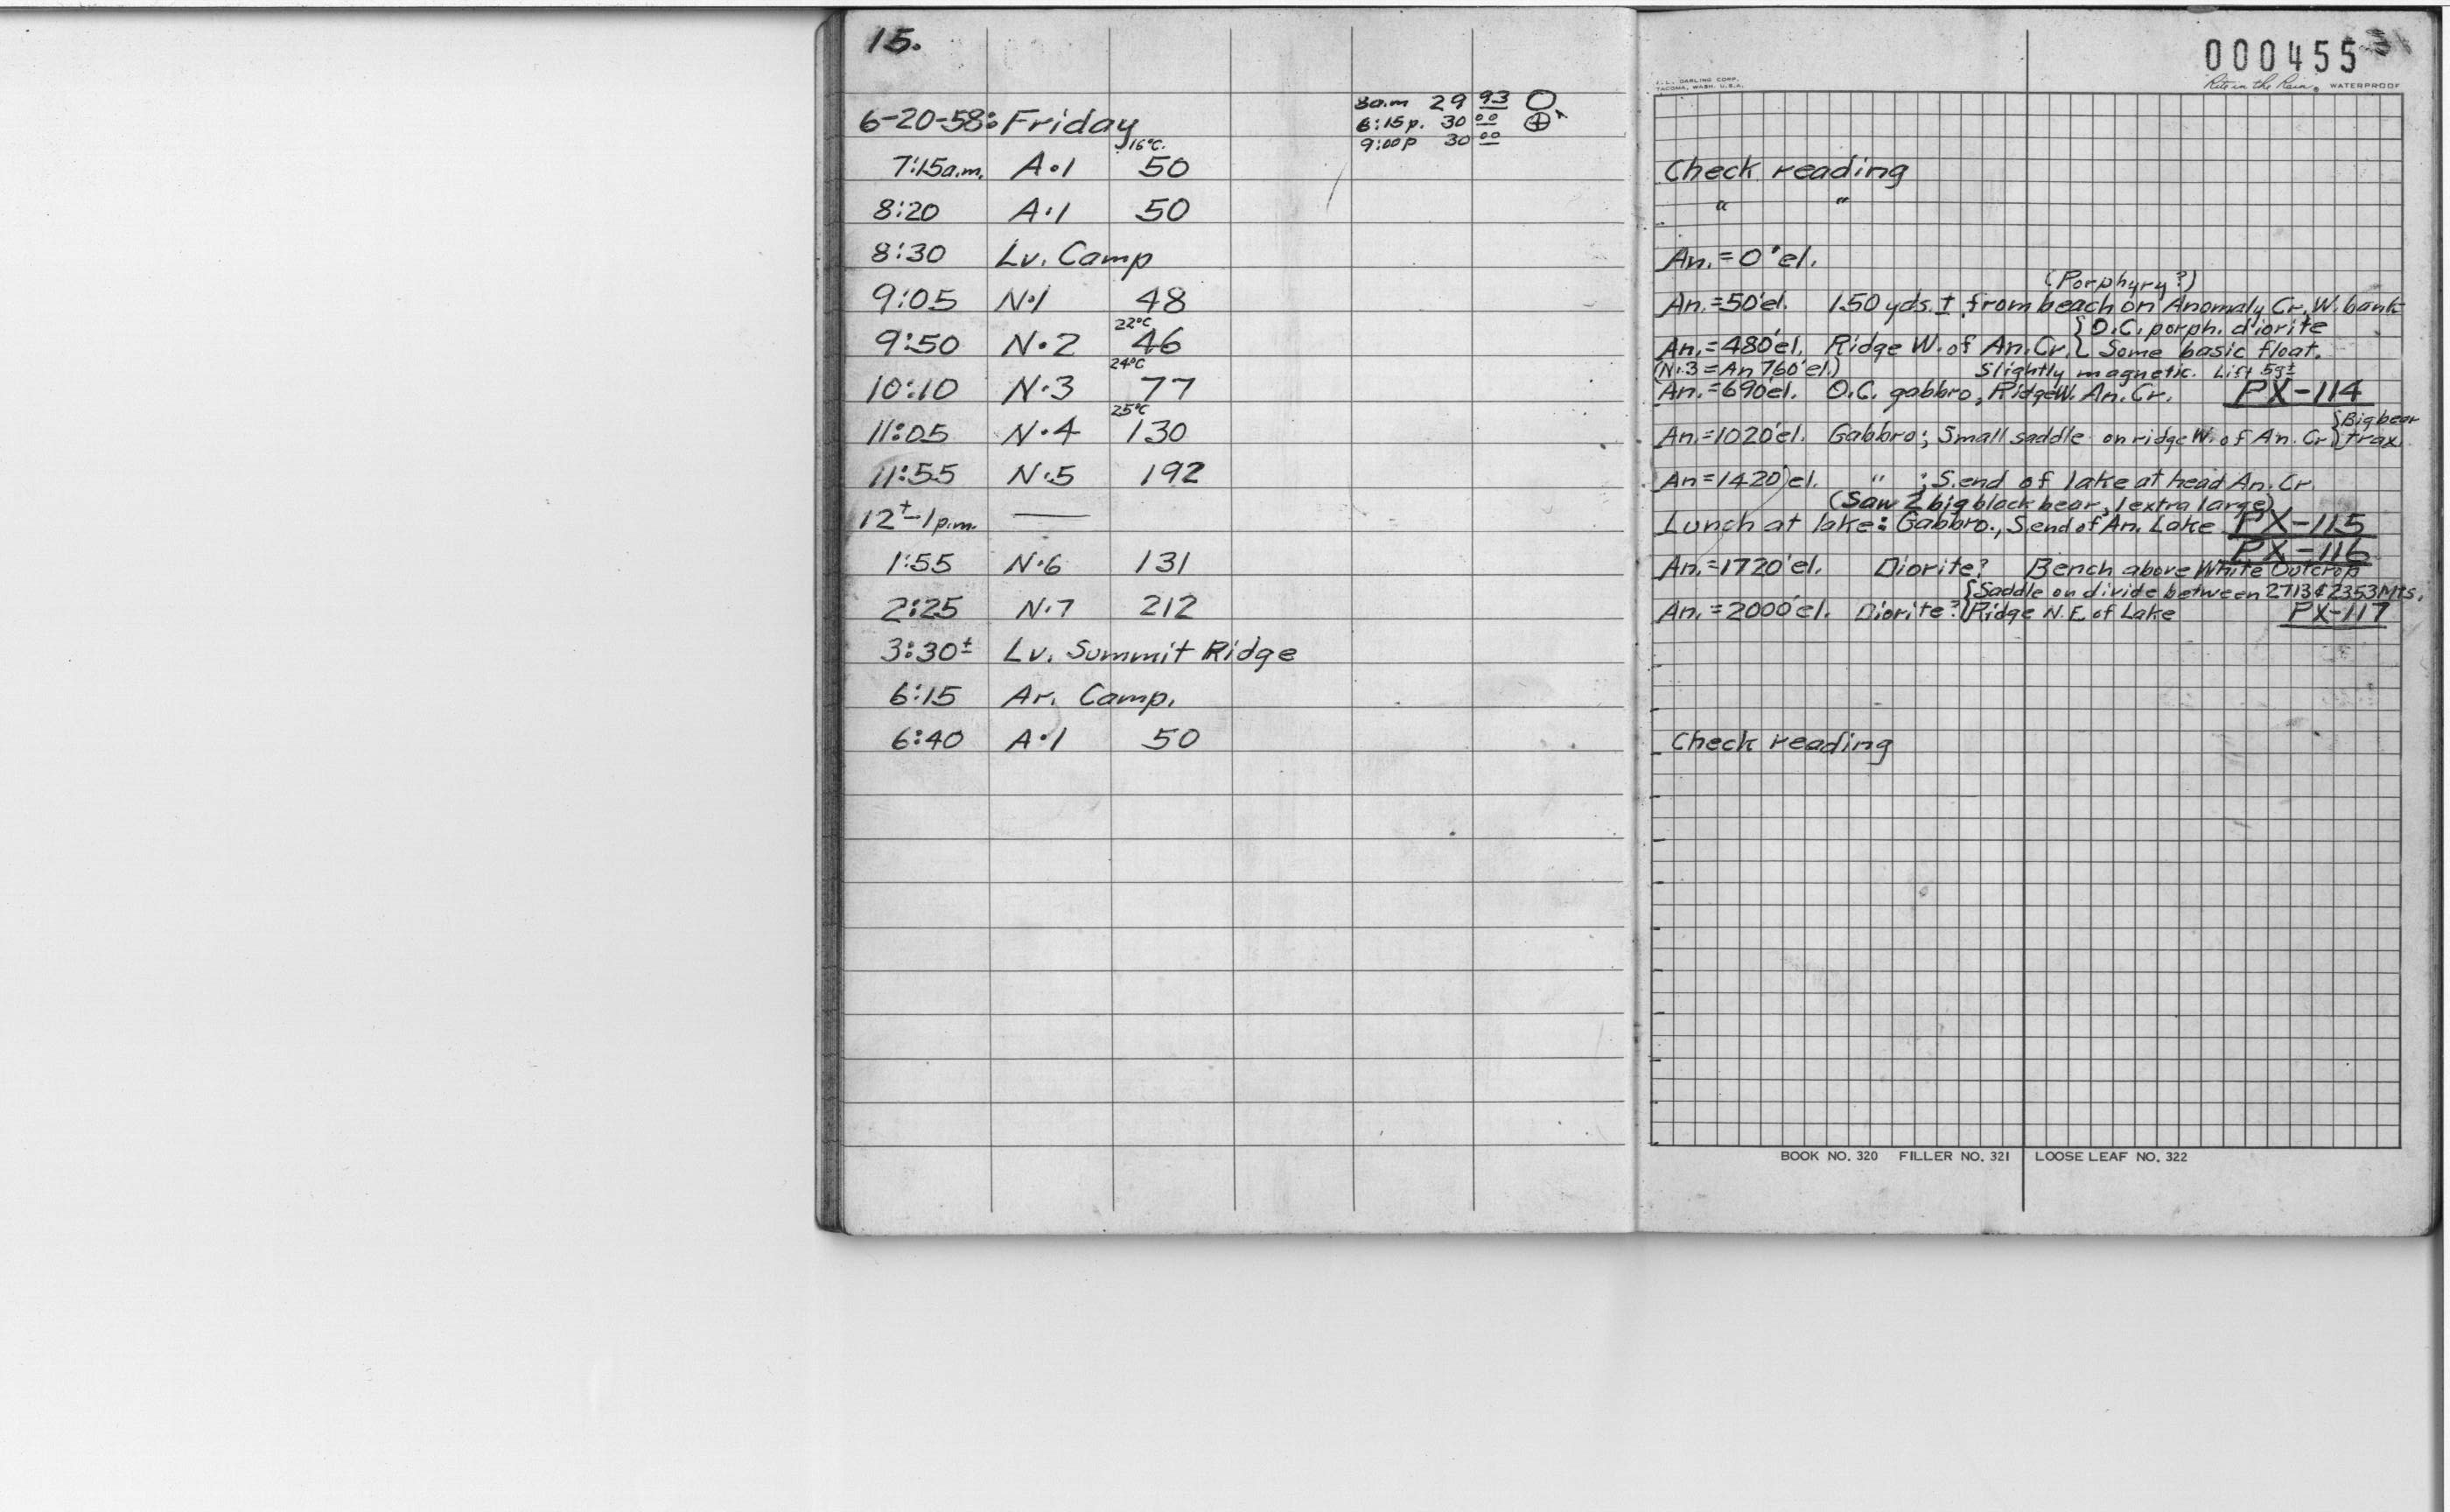 15.
8a.m 29 93
6-20-58: Friday
6:15p. 30 00
9:00p 30 00
16°C.
7:15a.m. A·1 50
8:20 A·1 50
8:30 Lv. Camp
9:05 N·1 48
22°C
9:50 N·2 46
24°C
10:10 N·3 77
25°C
11:05 N·4 130
11:55 N·5 192
12±-1p.m. —
1:55 N·6 131
2:25 N·7 212
3:30± Lv. Summit Ridge
6:15 Ar. Camp.
6:40 A·1 50
000455
J. L. DARLING CORP.
TACOMA, WASH. U.S.A.
Rite in the Rain WATERPROOF
Check reading
" "
An.=0'el.
(Porphyry?)
An.=50'el. 150 yds.± from beach on Anomaly Cr. W. bank
{O.C. porph. diorite
An.=480'el. Ridge W. of An. Cr.{ Some basic float.
(N·3=An 760'el.) Slightly magnetic. Lift 5g±
An.=690'el. O.C. gabbro, Ridge W. An. Cr. PX-114
{Big bear
An.=1020'el. Gabbro; Small saddle on ridge W. of An. Cr {trax
An=1420'el. " ; S. end of lake at head An. Cr.
(Saw 2 big black bear, 1 extra large)
Lunch at lake: Gabbro., S. end of An. Lake PX-115
PX-116
An.=1720'el. Diorite? Bench above White Outcrop
{Saddle on divide between 2713 & 2353 Mts.
An.=2000'el. Diorite? {Ridge N.E. of Lake PX-117
Check reading
BOOK NO. 320 FILLER NO. 321 LOOSE LEAF NO. 322